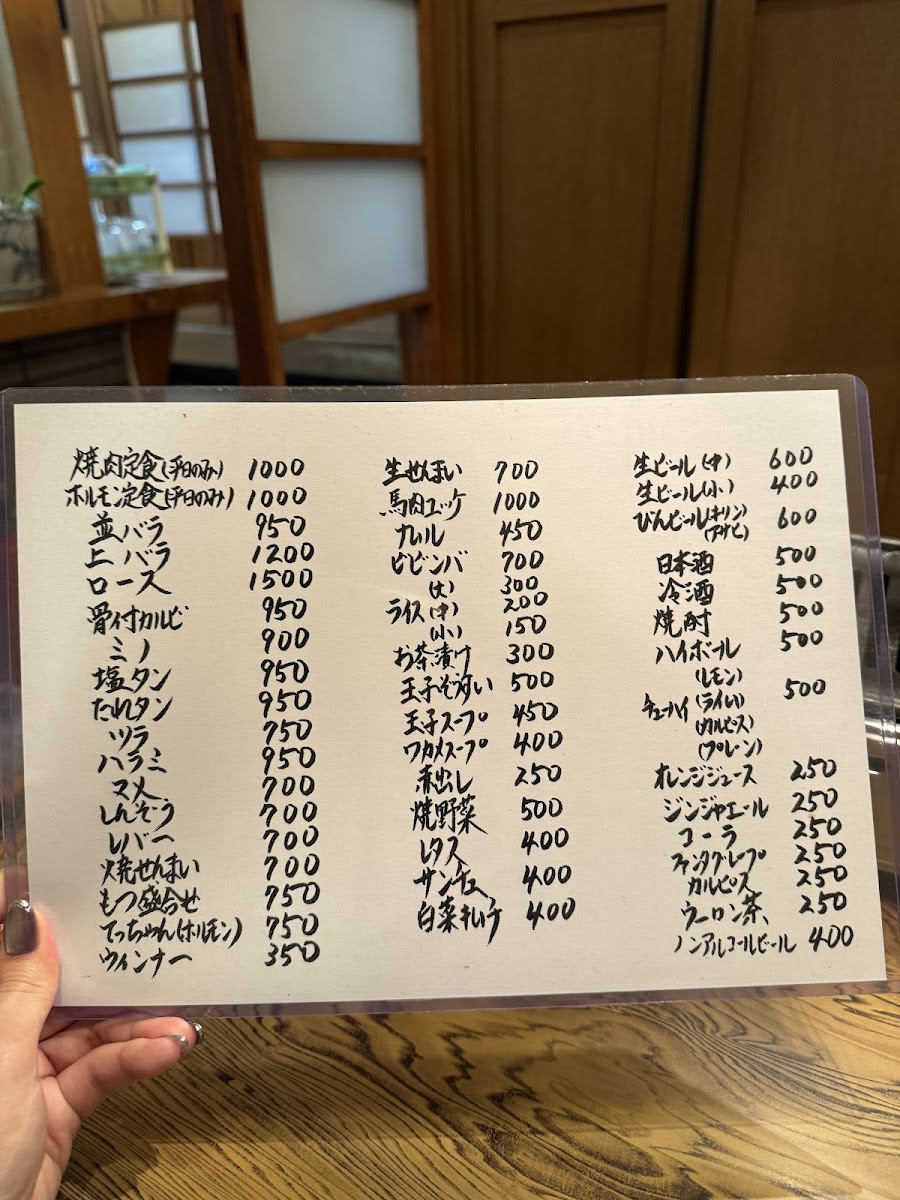 焼肉定食(平日のみ) 1000
ホルモン定食(平日のみ) 1000
並バラ 950
上バラ 1200
ロース 1500
骨付カルビ 950
ミノ 900
塩タン 950
たれタン 950
ツラ 750
ハラミ 950
マメ 700
しんぞう 700
レバー 700
焼せんまい 700
もつ盛合せ 750
てっちゃん(ホルモン) 750
ウィンナー 350
生せんまい 700
馬肉ユッケ 1000
ナムル 450
ビビンバ 700
ライス (大) 300
(中) 200
(小) 150
お茶漬け 300
玉子ぞうすい 500
玉子スープ 450
ワカメスープ 400
赤出し 250
焼野菜 500
レタス 400
サンチュ 400
白菜キムチ 400
生ビール(中) 600
生ビール(小) 400
びんビール(キリン) 600
(アサヒ)
日本酒 500
冷酒 500
焼酎 500
ハイボール 500
チューハイ (レモン) 500
(ライム)
(カルピス)
(プレーン)
オレンジジュース 250
ジンジャエール 250
コーラ 250
ファンタグレープ 250
カルピス 250
ウーロン茶 250
ノンアルコールビール 400